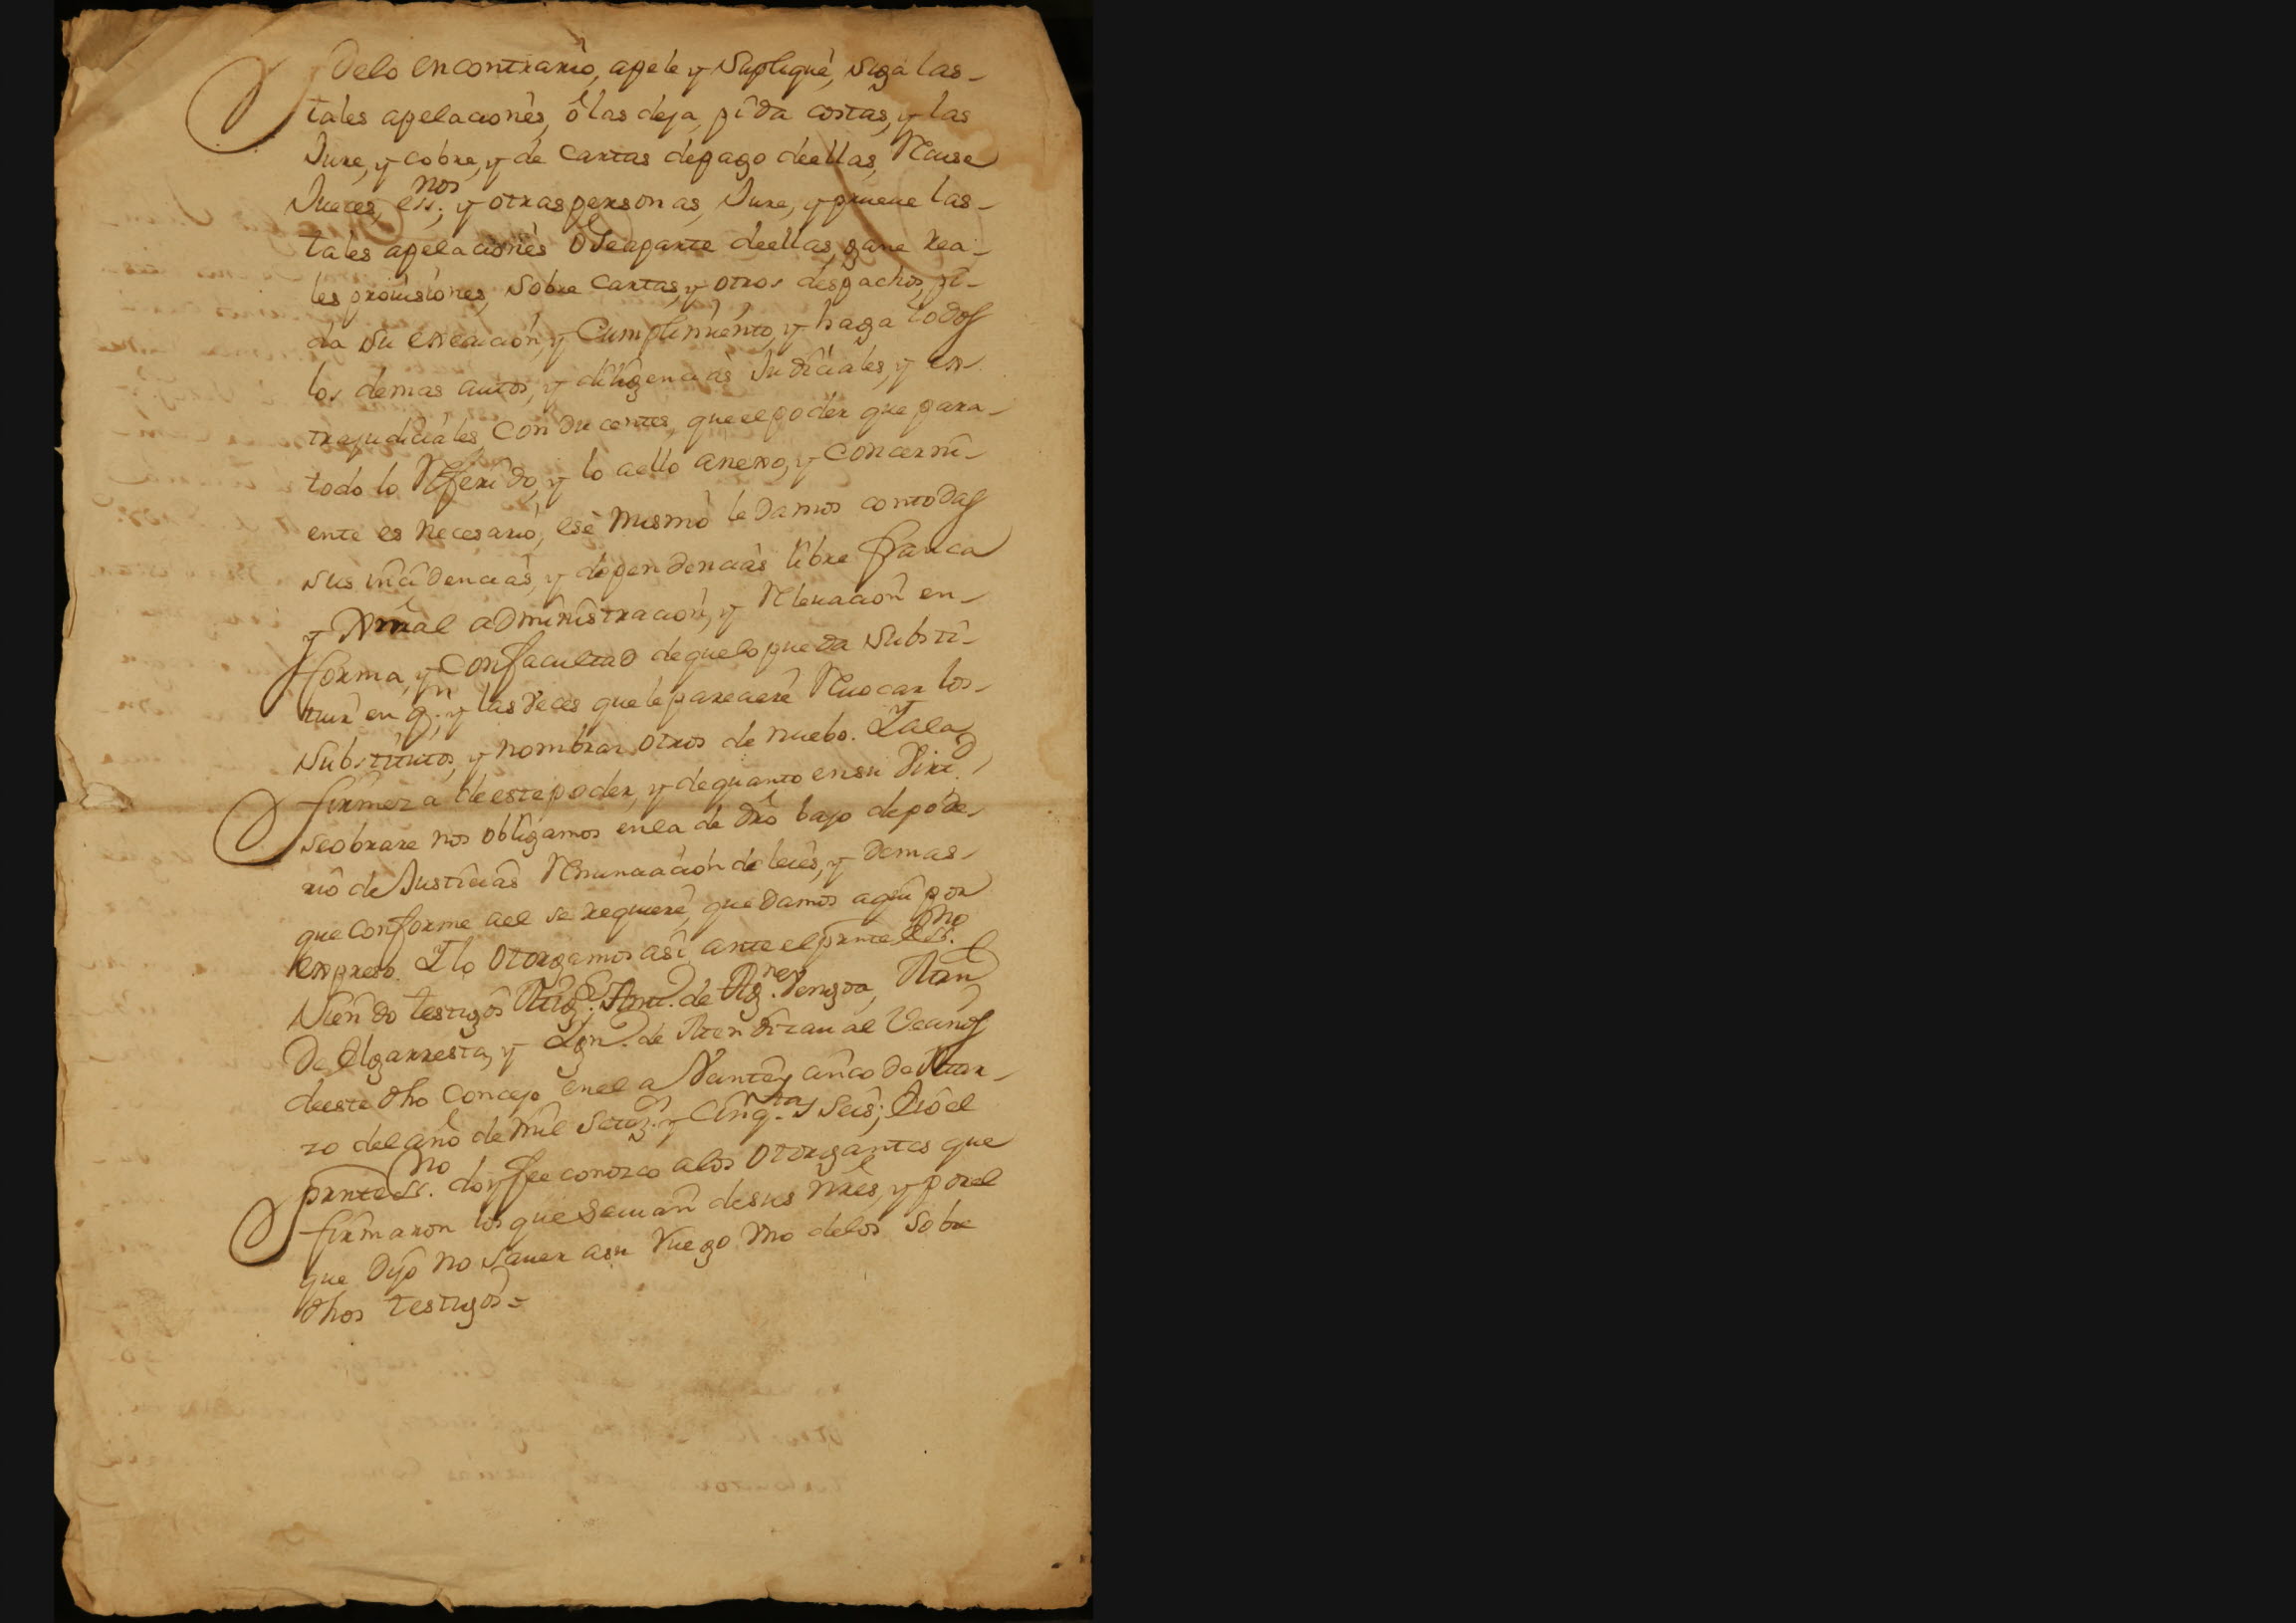 Delo encontrario, apele y Suplique, siga las-
tales apelaciones, ô las deja, pida costas, y las
Jure, y cobre, y de Cartas depago deellas, Recuse
Jueces, ess.nos y otras personas, Jure, y prueue las-
tales apelaciones ô Seaparte deellas, gane rea-
les prouisiones, sobre Cartas, y otros despachos, pi-
da su execucion, y Cumplimiento, y haga todos
los demas autos, y diligencias Judiciales, y ex-
trajudiciales, Conducentes, que el poder que para-
todo lo Referido, y lo aello anexo, y Concerni-
ente es necesario, ese mismo le Damos contodas
sus incidencias, y dependencias libre franca
y Xnral administracion, y Releuacion en-
forma, y Confacultad dequelo pueda Substi-
tuir en q.n y las veces que le pareciere Reuocar los-
Substitutos, y nombrar otros de nuebo. Yala
firmeza de este poder, y de quanto ensu Virt.d
seobrare nos obligamos enla de dro bajo depode-
rio de Justicias Renunciacion de leies, y demas-
que Conforme ael se requiere, quedamos aqui por
expreso. Ylo Otorgamos asi ante el prnte ess.no
Siendo testigos de
De Elgarresta, y de Vecinos
deeste dho Concejo en el a Veinte y cinco de Mar-
zo del año de mil Setez.s y Cinq.ta y Seis; Yo el
prnte ess.no doy fee conozco alos Otorgantes que
firmaron los que Sauian desus nres, y por el
que Dijo no Sauer asu Ruego vno delos Sobre
dhos testigos=